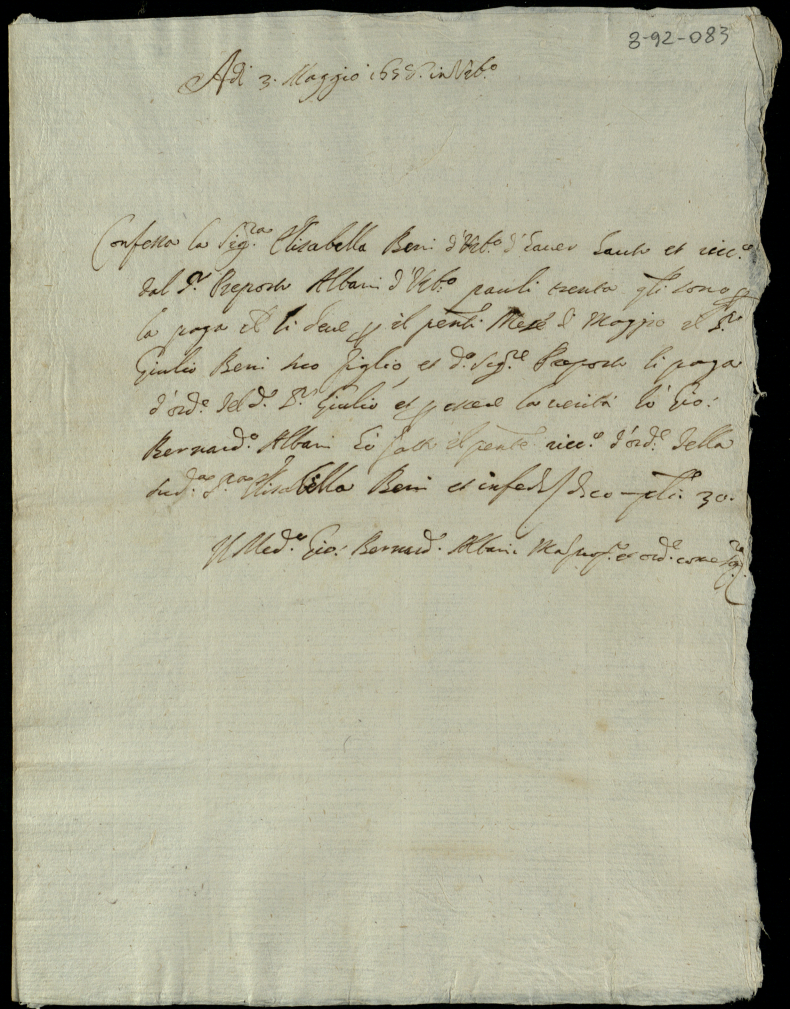 8-92-083
Adi 3. Maggio 1658. in Urb.o
Confessa la Sig.ra Elisabella Beni d'Urb.o d'haver hauto et ricc.o
dal S.r Preposto Albani d'Urb.o pauli trenta q̃li sono p
la paga ch̃ li deve p il pn̄te Mese di Maggio il S.r
Giulio Beni suo figlio, et d.o Sig.re Preposto li paga
d'ord.e del d.o S.r Giulio et p essere la verità Io Gio:
Bernard.o Albani hò fatto il pn̄te ricc.o d'ord.e della
sud.a S.ra Elisabella Beni et in fede dico pli 30.
Il Med.o Gio: Bernard.o Albani M.o et ord.e come s.a